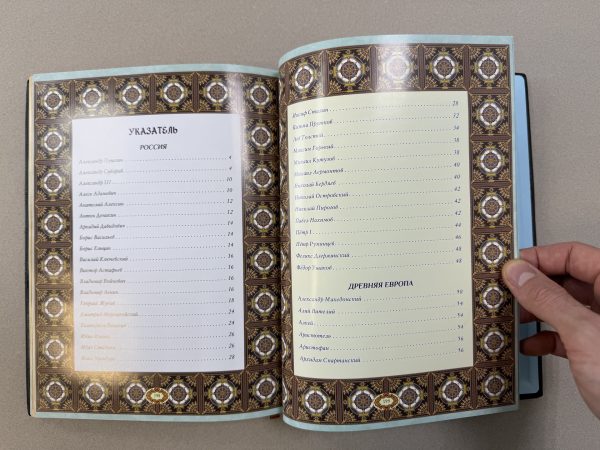 УКАЗАТЕЛЬ
РОССИЯ
Александр Пушкин 4
Александр Суворов 4
Александр III 10
Алексей 10
Анатолий Алексин 12
Антон Деникин 12
Аркадий Давидович 14
Борис Васильев 14
Борис Ельцин 14
Василий Ключевский 16
Виктор Астафьев 16
Владимир 16
Владимир Ленин 16
Георгий Жуков 18
Дмитрий 24
Екатерина 24
Иван 26
Иван 26
Иван 28
Иосиф Сталин 28
Козьма Прутков 32
Лев Толстой 34
Максим Горький 38
Михаил Кутузов 38
Михаил Лермонтов 40
Николай Бердяев 40
Николай Островский 42
Николай Пирогов 42
Павел Нахимов 44
Пётр I 44
Пётр Румянцев 46
Феликс Дзержинский 48
Фёдор Ушаков 48
ДРЕВНЯЯ ЕВРОПА
Александр Македонский 50
Алкей 54
Аристотель 54
Аристофан 56
Архидам Спартанский